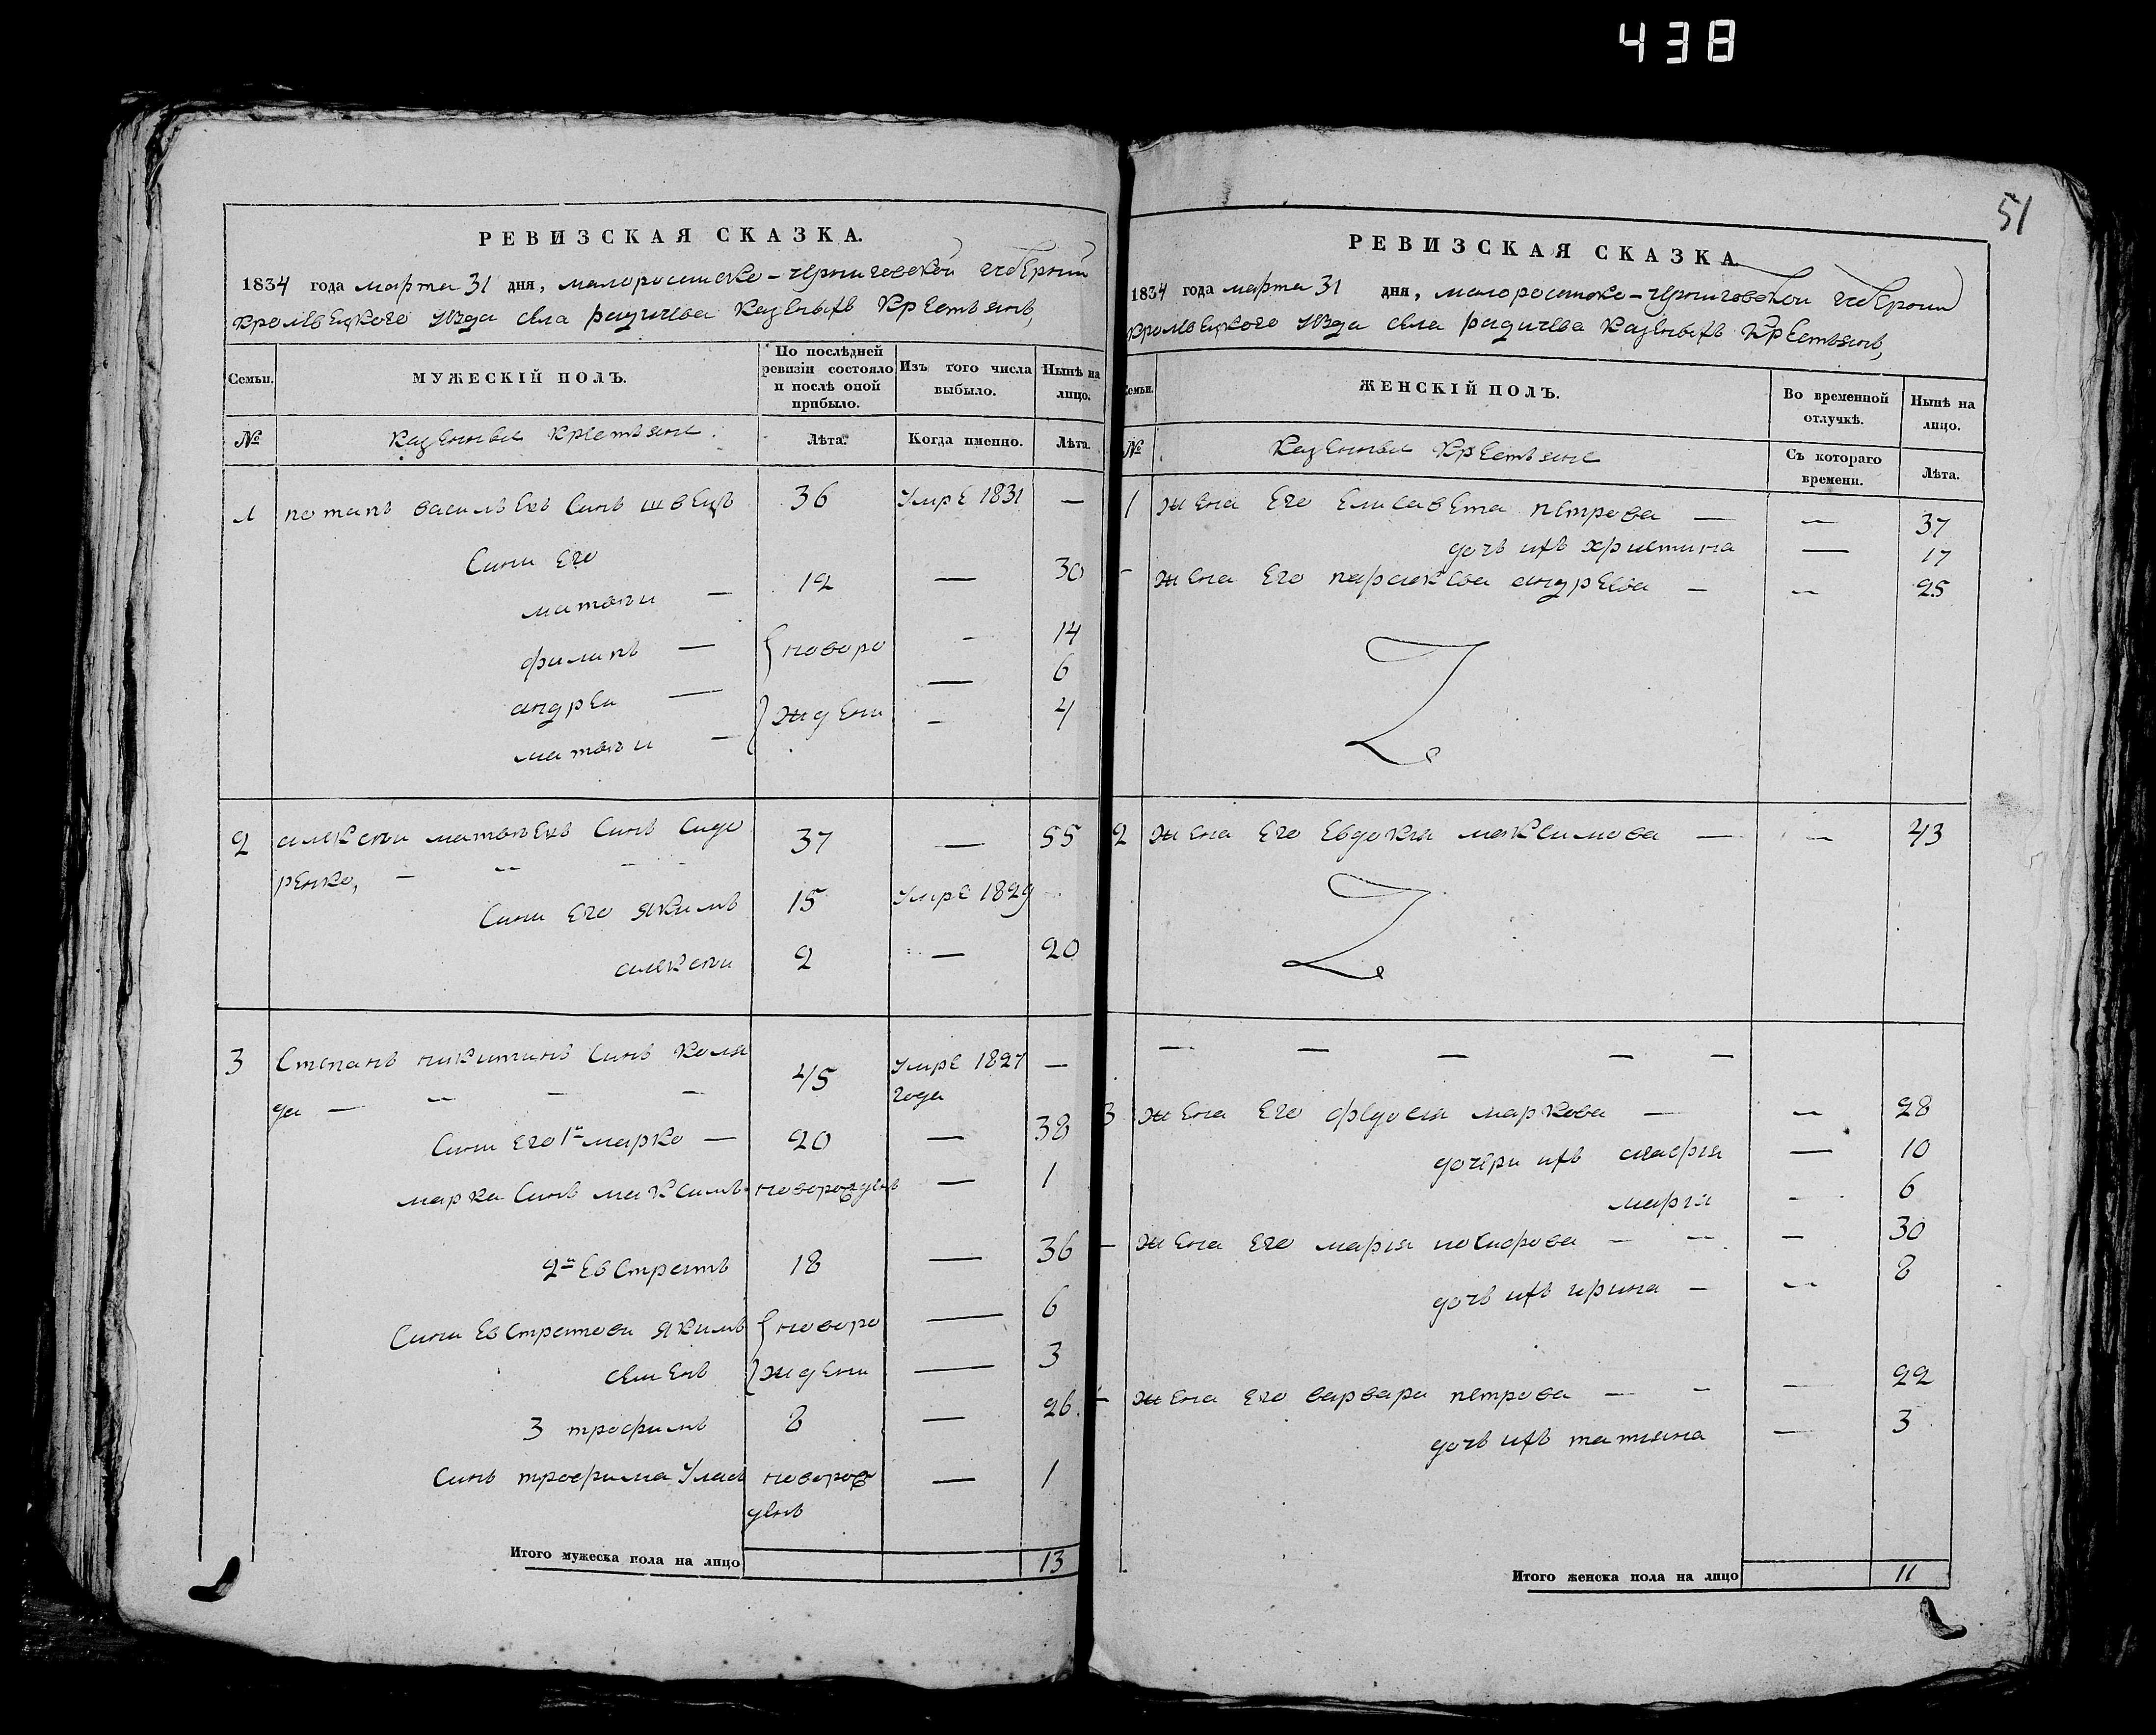 438
51
РЕВИЗСКАЯ СКАЗКА.
1834 года марта 31 дня, малоросииско-черниговской губернии
кролевецкого уезда села радичева казеныхъ крестьянъ,
Семьи.
МУЖЕСКІЙ ПОЛЪ.
По послѣдней ревизіи состояло и послѣ оной прибыло.
Изъ того числа выбыло.
Нынѣ на лицо.
№
казенные крестьяне.
Лѣта.
Когда именно.
Лѣта.
1 потапъ васильевъ синъ швецъ 36 умре 1831 —
Сини его
матвѣи — 12 — 30
филипъ — { новоро - 14
андреи — — 6
матвѣи - } ждени - 4
2 алексѣи матвѣевъ синъ сидо 37 — 55
ренко,
Сини его якимъ 15 умре 1829
алексѣи 2 — 20
3 Степанъ никитинъ синъ коля 45 умре 1827 —
да — года
Сини его 1й марко — 20 — 38
марка синъ максимъ новорожденъ — 1
2й евстратъ 18 — 36
Сини евстратови якимъ { новоро — 6
семенъ } ждени — 3
3 трофимъ 8 — 26
Синъ трофима уласъ новорож — 1
денъ
Итого мужеска пола на лицо 13
РЕВИЗСКАЯ СКАЗКА.
1834 года марта 31 дня, малоросииско-черниговской губернии
кролевецкого уезда села радичева казеныхъ крестьянъ,
Семьи.
ЖЕНСКІЙ ПОЛЪ.
Во временной отлучкѣ.
Нынѣ на лицо.
№
казенные крестьяне
Съ котораго времени.
Лѣта.
1 жена его елисавета петрова — — 37
дочь ихъ христина — 17
- жена его параскева андреева — — 25
2 жена его евдокия максимова — — 43
— — — — —
3 жена его федосия маркова — — 28
дочери ихъ агафия — 10
мария - 6
- жена его мария никифорова — — — 30
дочь ихъ ирина — — 8
- жена его варвара петрова — - — 22
дочь ихъ татияна — 3
Итого женска пола на лицо 11